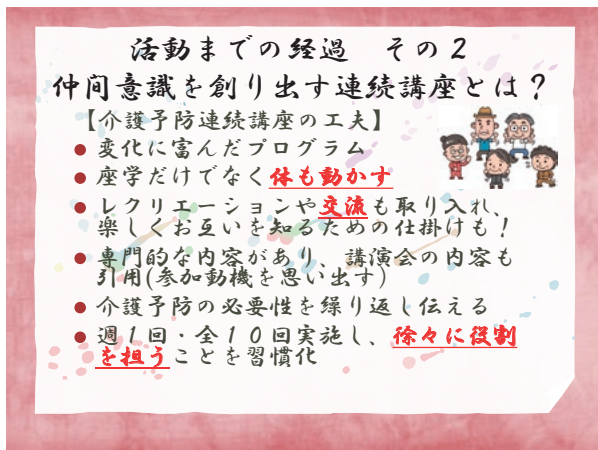 活動までの経過　その２
仲間意識を創り出す連続講座とは？
【介護予防連続講座の工夫】
● 変化に富んだプログラム
● 座学だけでなく体も動かす
● レクリエーションや交流も取り入れ、
楽しくお互いを知るための仕掛けも！
● 専門的な内容があり、講演会の内容も
引用(参加動機を思い出す)
● 介護予防の必要性を繰り返し伝える
● 週１回・全１０回実施し、徐々に役割
を担うことを習慣化